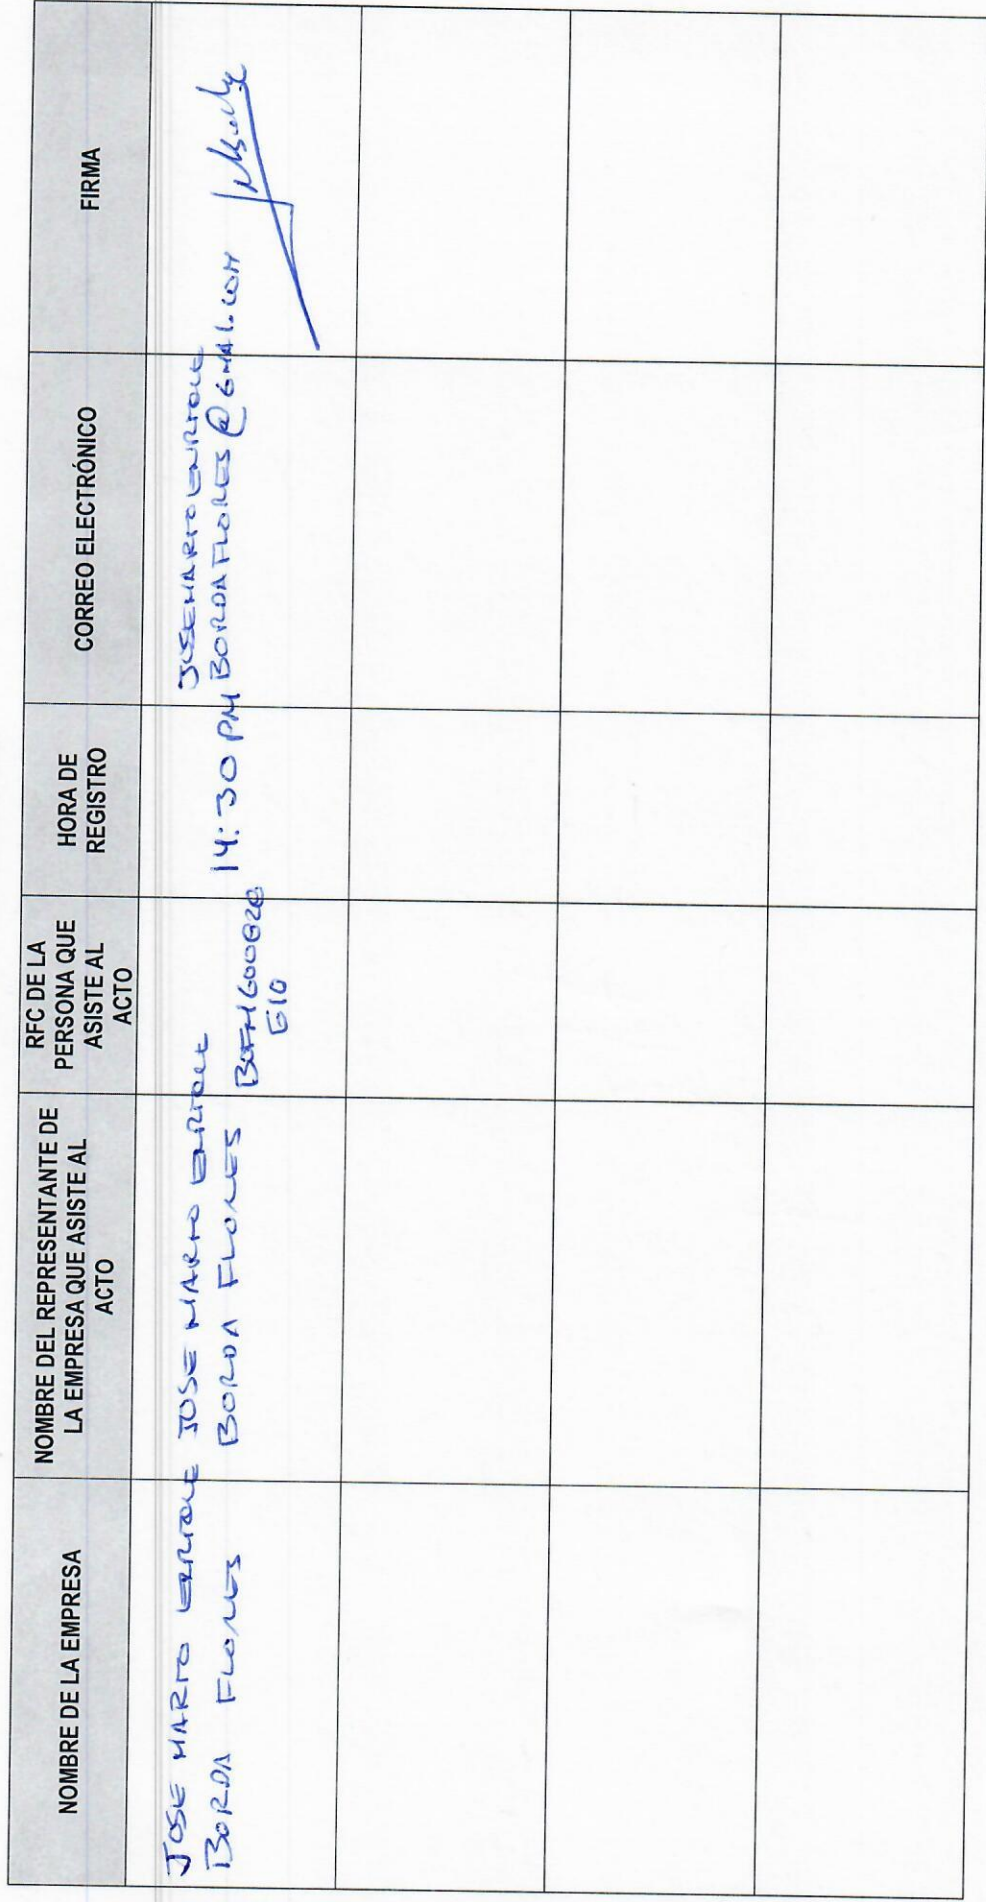 NOMBRE DE LA EMPRESA
NOMBRE DEL REPRESENTANTE DE
LA EMPRESA QUE ASISTE AL
ACTO
RFC DE LA
PERSONA QUE
ASISTE AL
ACTO
HORA DE
REGISTRO
CORREO ELECTRÓNICO
FIRMA
JOSE MARIO ENRIQUE
BORDA FLORES
JOSE MARIO ENRIQUE
BORDA FLORES
14:30 PM
JOSEMARIOENRIQUE
BORDAFLORES@GMAIL.COM